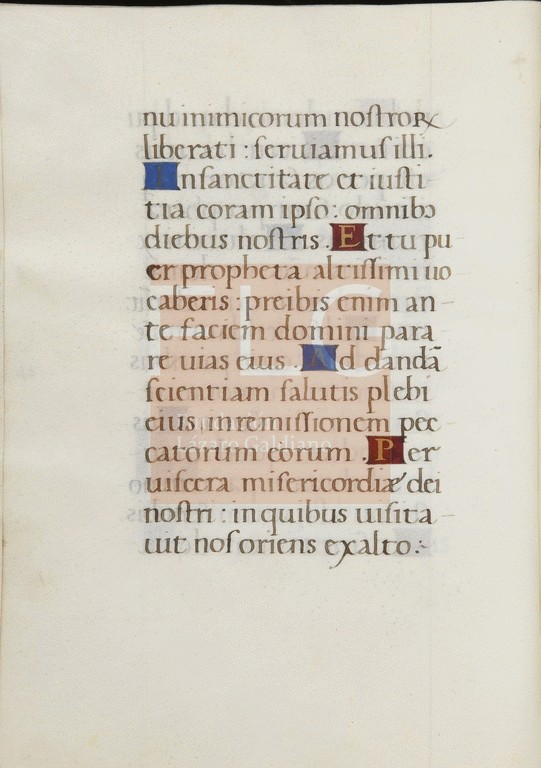 nu inimicorum nostroꝝ
liberati : seruiamus illi.
In sanctitate et iusti
tia coram ipso : omnibꝰ
diebus nostris . Et tu pu
er propheta altissimi uo
caberis : preibis enim an
te faciem domini para
re uias eius . Ad dandā
scientiam salutis plebi
eius in remissionem pec
catorum eorum . Per
uiscera misericordiæ dei
nostri : in quibus uisita
uit nos oriens ex alto .
FLG
Fundación
Lázaro Galdiano